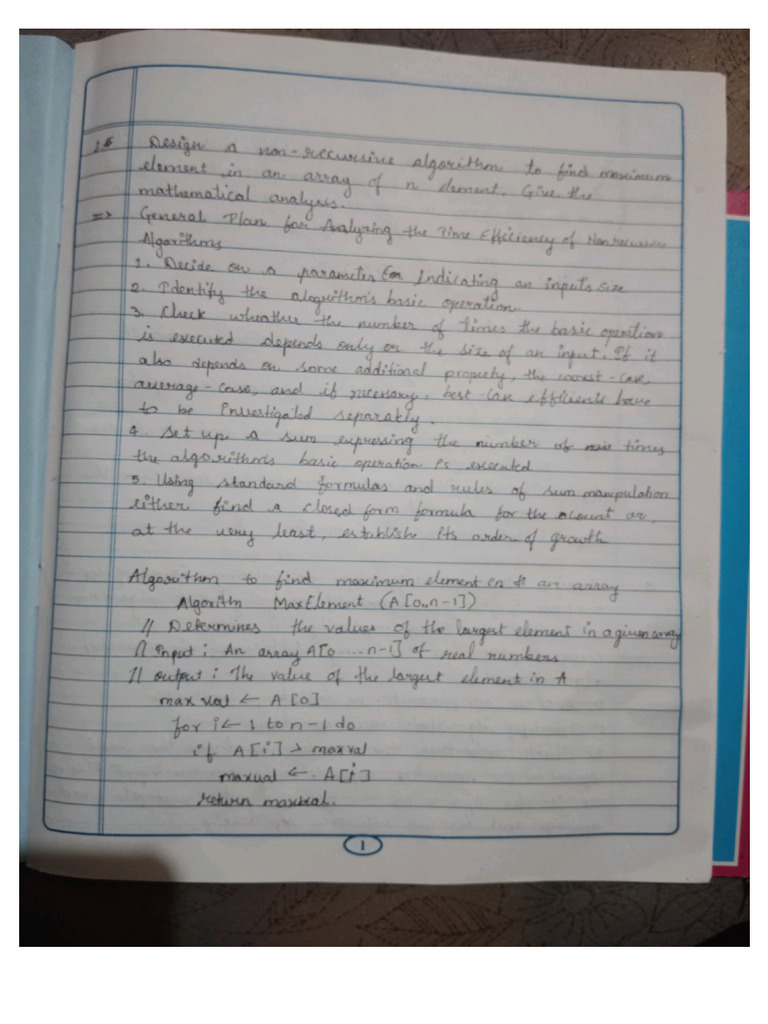 Design a non-reccursive algorithm to find maximum
element in an array of n element. Give the
mathematical analysis.
=> General Plan for Analyzing the Time Efficiency of Nonrecursive
Algorithms
1. Decide on a parameter for Indicating an inputs size
2. Identify the alogrithm's basic operation.
3. Check wheather the number of times the basic operation
is executed depends only on the size of an input. If it
also depends on some additional property, the worst-case,
average-case, and if necessary, best-case efficients have
to be investigated separately.
4. Set up a sum expressing the number of times
the algorithms basic operation is executed
5. Using standard formulas and rules of sum manipulation
either find a closed form formula for the count or,
at the very least, establish its order of growth
Algorithm to find maximum element in an array
Algorith MaxElement (A[0..n-1])
// Determines the values of the largest element in a given array
// Input : An array A[0 ....n-1] of real numbers
// output : The value of the largest element in A
maxval ← A[0]
for i ← 1 to n-1 do
if A[i] > maxval
maxval ← A[i]
return maxval.
1